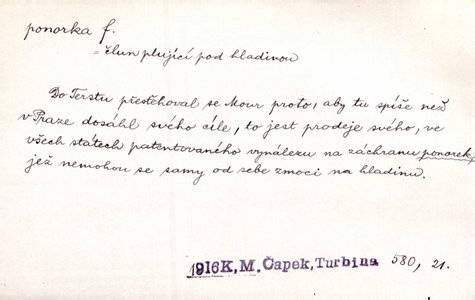 ponorka f.
= člun plující pod hladinou
Do Terstu přestěhoval se Mour proto, aby tu spíše než
v Praze dosáhl svého cíle, to jest prodeje svého, ve
všech státech patentovaného vynálezu na záchranu ponorek,
jež nemohou se samy od sebe zmoci na hladinu.
1916K, M. Čapek, Turbina 580, 21.